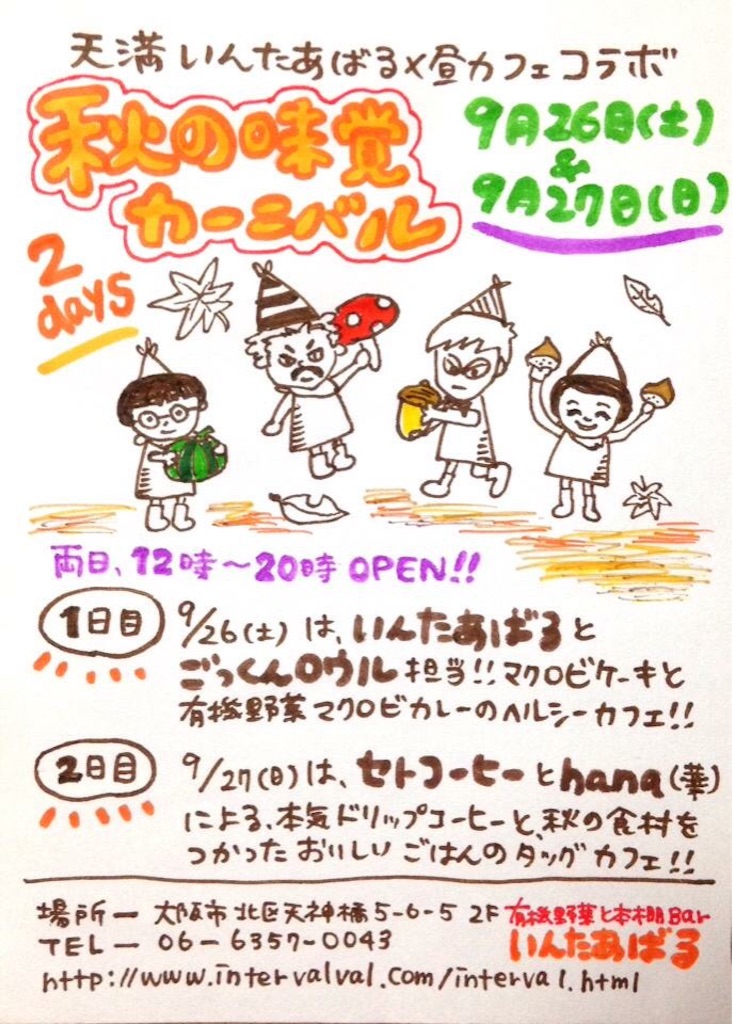 天満 いんたあばる×昼カフェコラボ
秋の味覚
カーニバル
9月26日(土)
&
9月27日(日)
2
days
両日、12時〜20時 OPEN!!
1日目
9/26(土) は、いんたあばると
ごっくんロウル 担当!! マクロビケーキと
有機野菜マクロビカレーのヘルシーカフェ!!
2日目
9/27(日)は、セトコーヒーとhana(華)
による、本気ドリップコーヒーと、秋の食材を
つかった おいしい ごはんのタッグカフェ!!
場所ー 大阪市北区天神橋5-6-5 2F
有機野菜と本棚Bar
いんたあばる
TEL ー 06-6357-0043
http://www.intervalval.com/interval.html